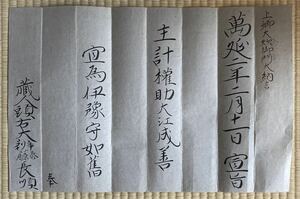 上卿大炊御門大納言
萬延二年二月十一日 宣旨
主計權助大江成善
宜為伊豫守如舊
藏人頭右大辨藤原長順 奉